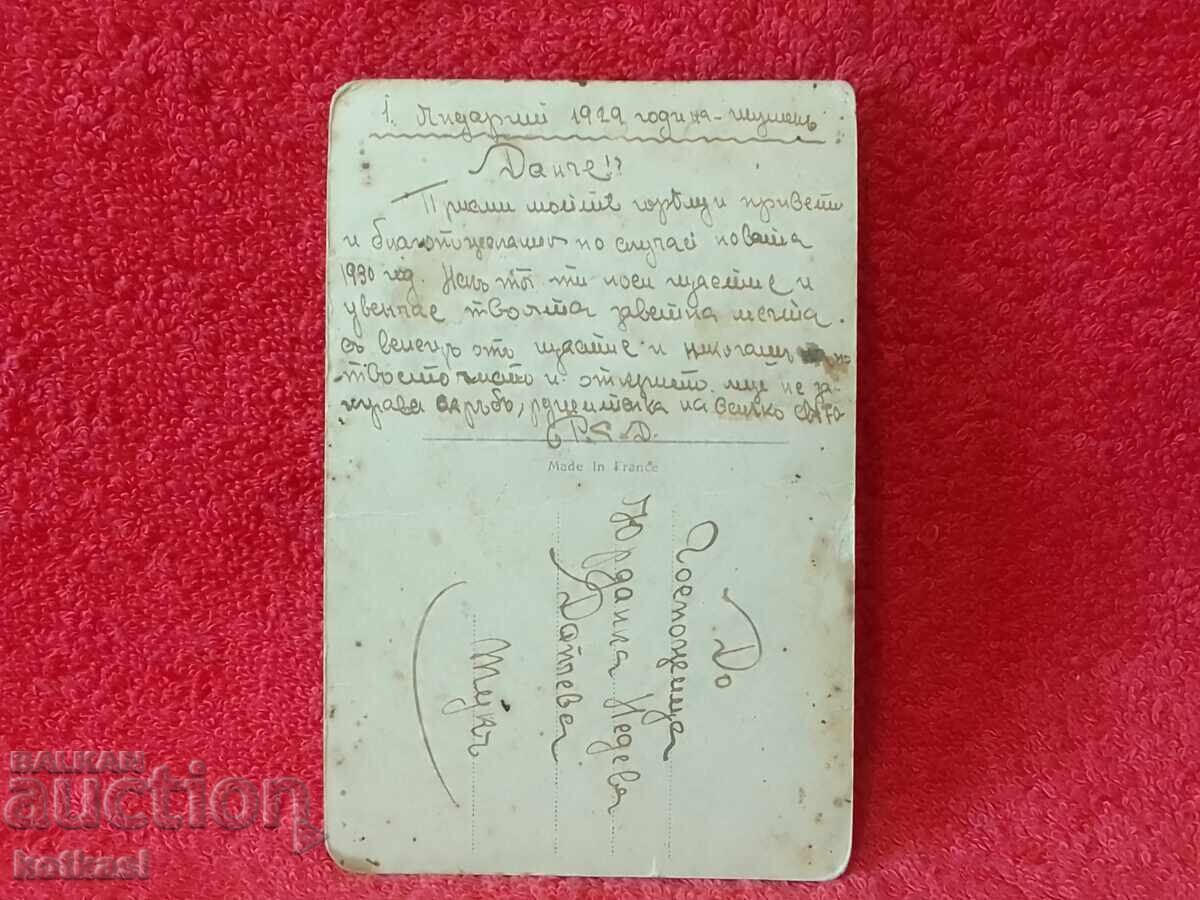 1. Януарий 1929 година - Шуменъ
Данче!?
Приеми моите горѣщи привети
и благопожелания по случай новата
1930 год. Нека тя ти носи щастие и
увенчае твоята заветна мечта
съ венецъ отъ щастие и никогашъ
твоето чисто и
на всичко свято
P.S.D.
Made In France
До
Госпожица
Юрданка Недева
Данчева
Тукъ
BALKAN
auction
kolkasi